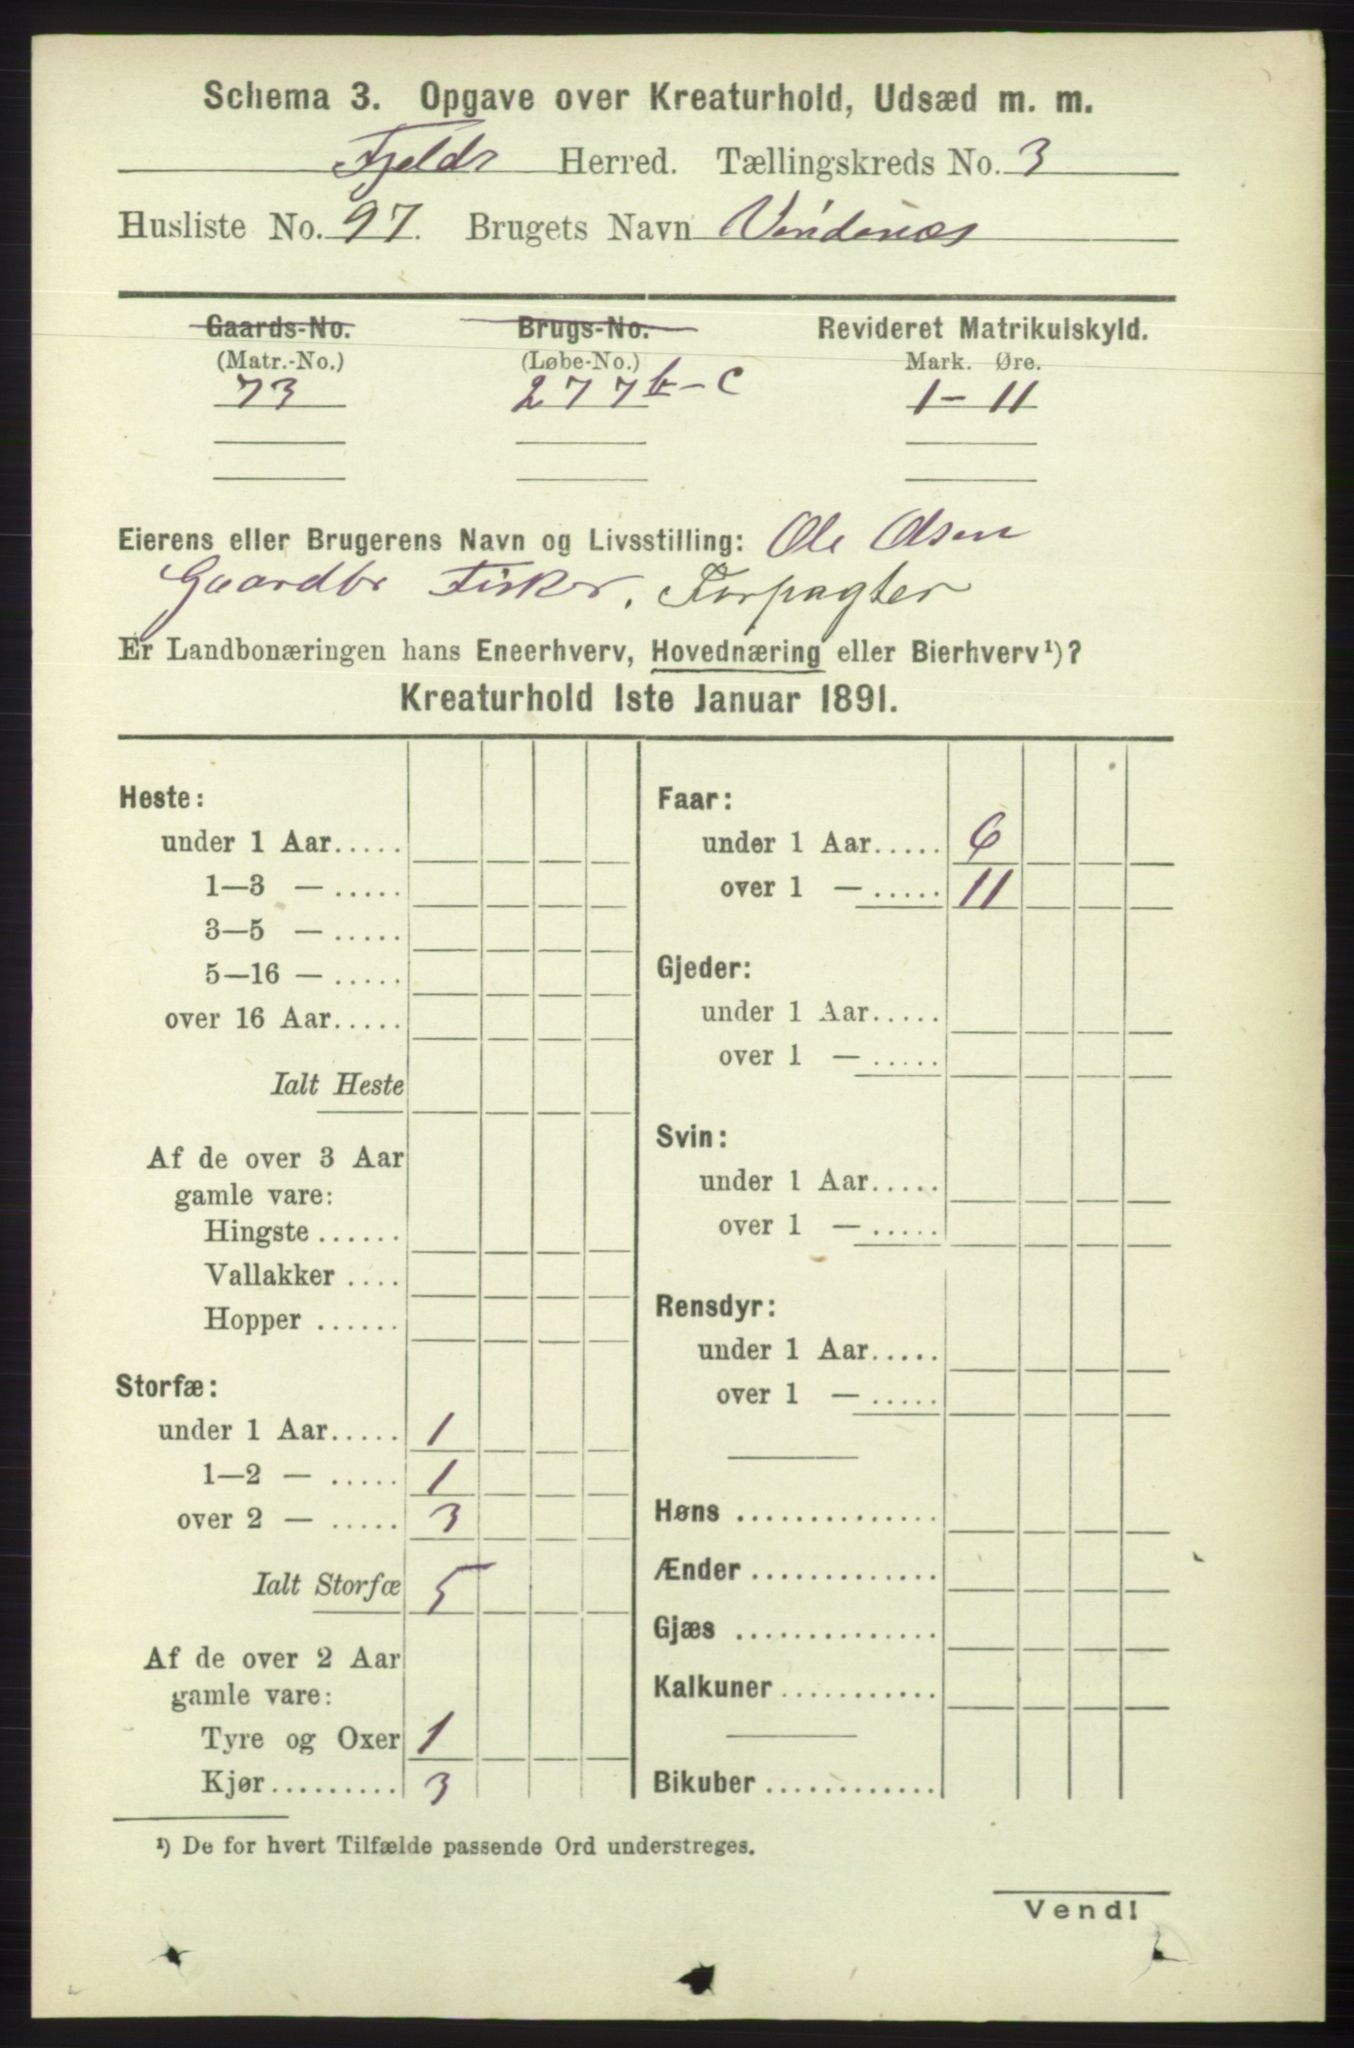 Schema 3. Opgave over Kreaturhold, Udsæd m. m.
Fjelds Herred. Tællingskreds No. 3
Husliste No. 97. Brugets Navn Vindenæs
Gaards-No. Brugs-No. Revideret Matrikulskyld.
(Matr.-No.) (Løbe-No.) Mark. Øre.
73 277 b-c 1-11
Eierens eller Brugerens Navn og Livsstilling: Ole Olsen
Gaardbr Fisker. Forpagter
Er Landbonæringen hans Eneerhverv, Hovednæring eller Bierhverv¹)?
Kreaturhold 1ste Januar 1891.
Heste:
under 1 Aar.....
1—3 — .....
3—5 — .....
5—16 — .....
over 16 Aar.....
Ialt Heste
Af de over 3 Aar
gamle vare:
Hingste ......
Vallakker ....
Hopper ......
Storfæ:
under 1 Aar..... 1
1—2 — ..... 1
over 2 — ..... 3
Ialt Storfæ 5
Af de over 2 Aar
gamle vare:
Tyre og Oxer 1
Kjør......... 3
Faar:
under 1 Aar..... 6
over 1 — ..... 11
Gjeder:
under 1 Aar.....
over 1 — .....
Svin:
under 1 Aar.....
over 1 — .....
Rensdyr:
under 1 Aar.....
over 1 — .....
Høns ..............
Ænder .............
Gjæs ..............
Kalkuner ...........
Bikuber .............
¹) De for hvert Tilfælde passende Ord understreges.
Vend!